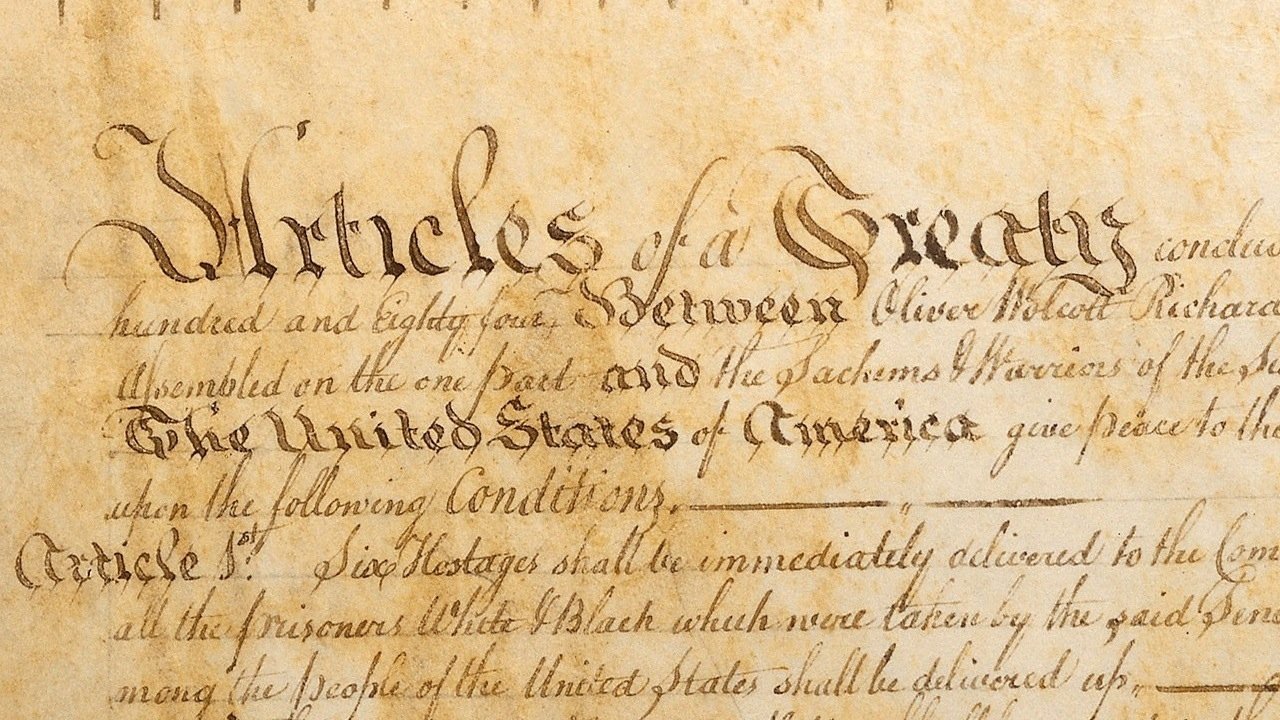 Articles of a Treaty conclud
hundred and Eighty four, Between Oliver Wolcott Richard
Assembled on the one part and the Sachems & Warriors of the Si
The United States of America give peace to the
upon the following Conditions.
Article 1st. Six Hostages shall be immediately delivered to the Com
all the prisoners White & Black which were taken by the said Sene
among the people of the United States shall be delivered up.